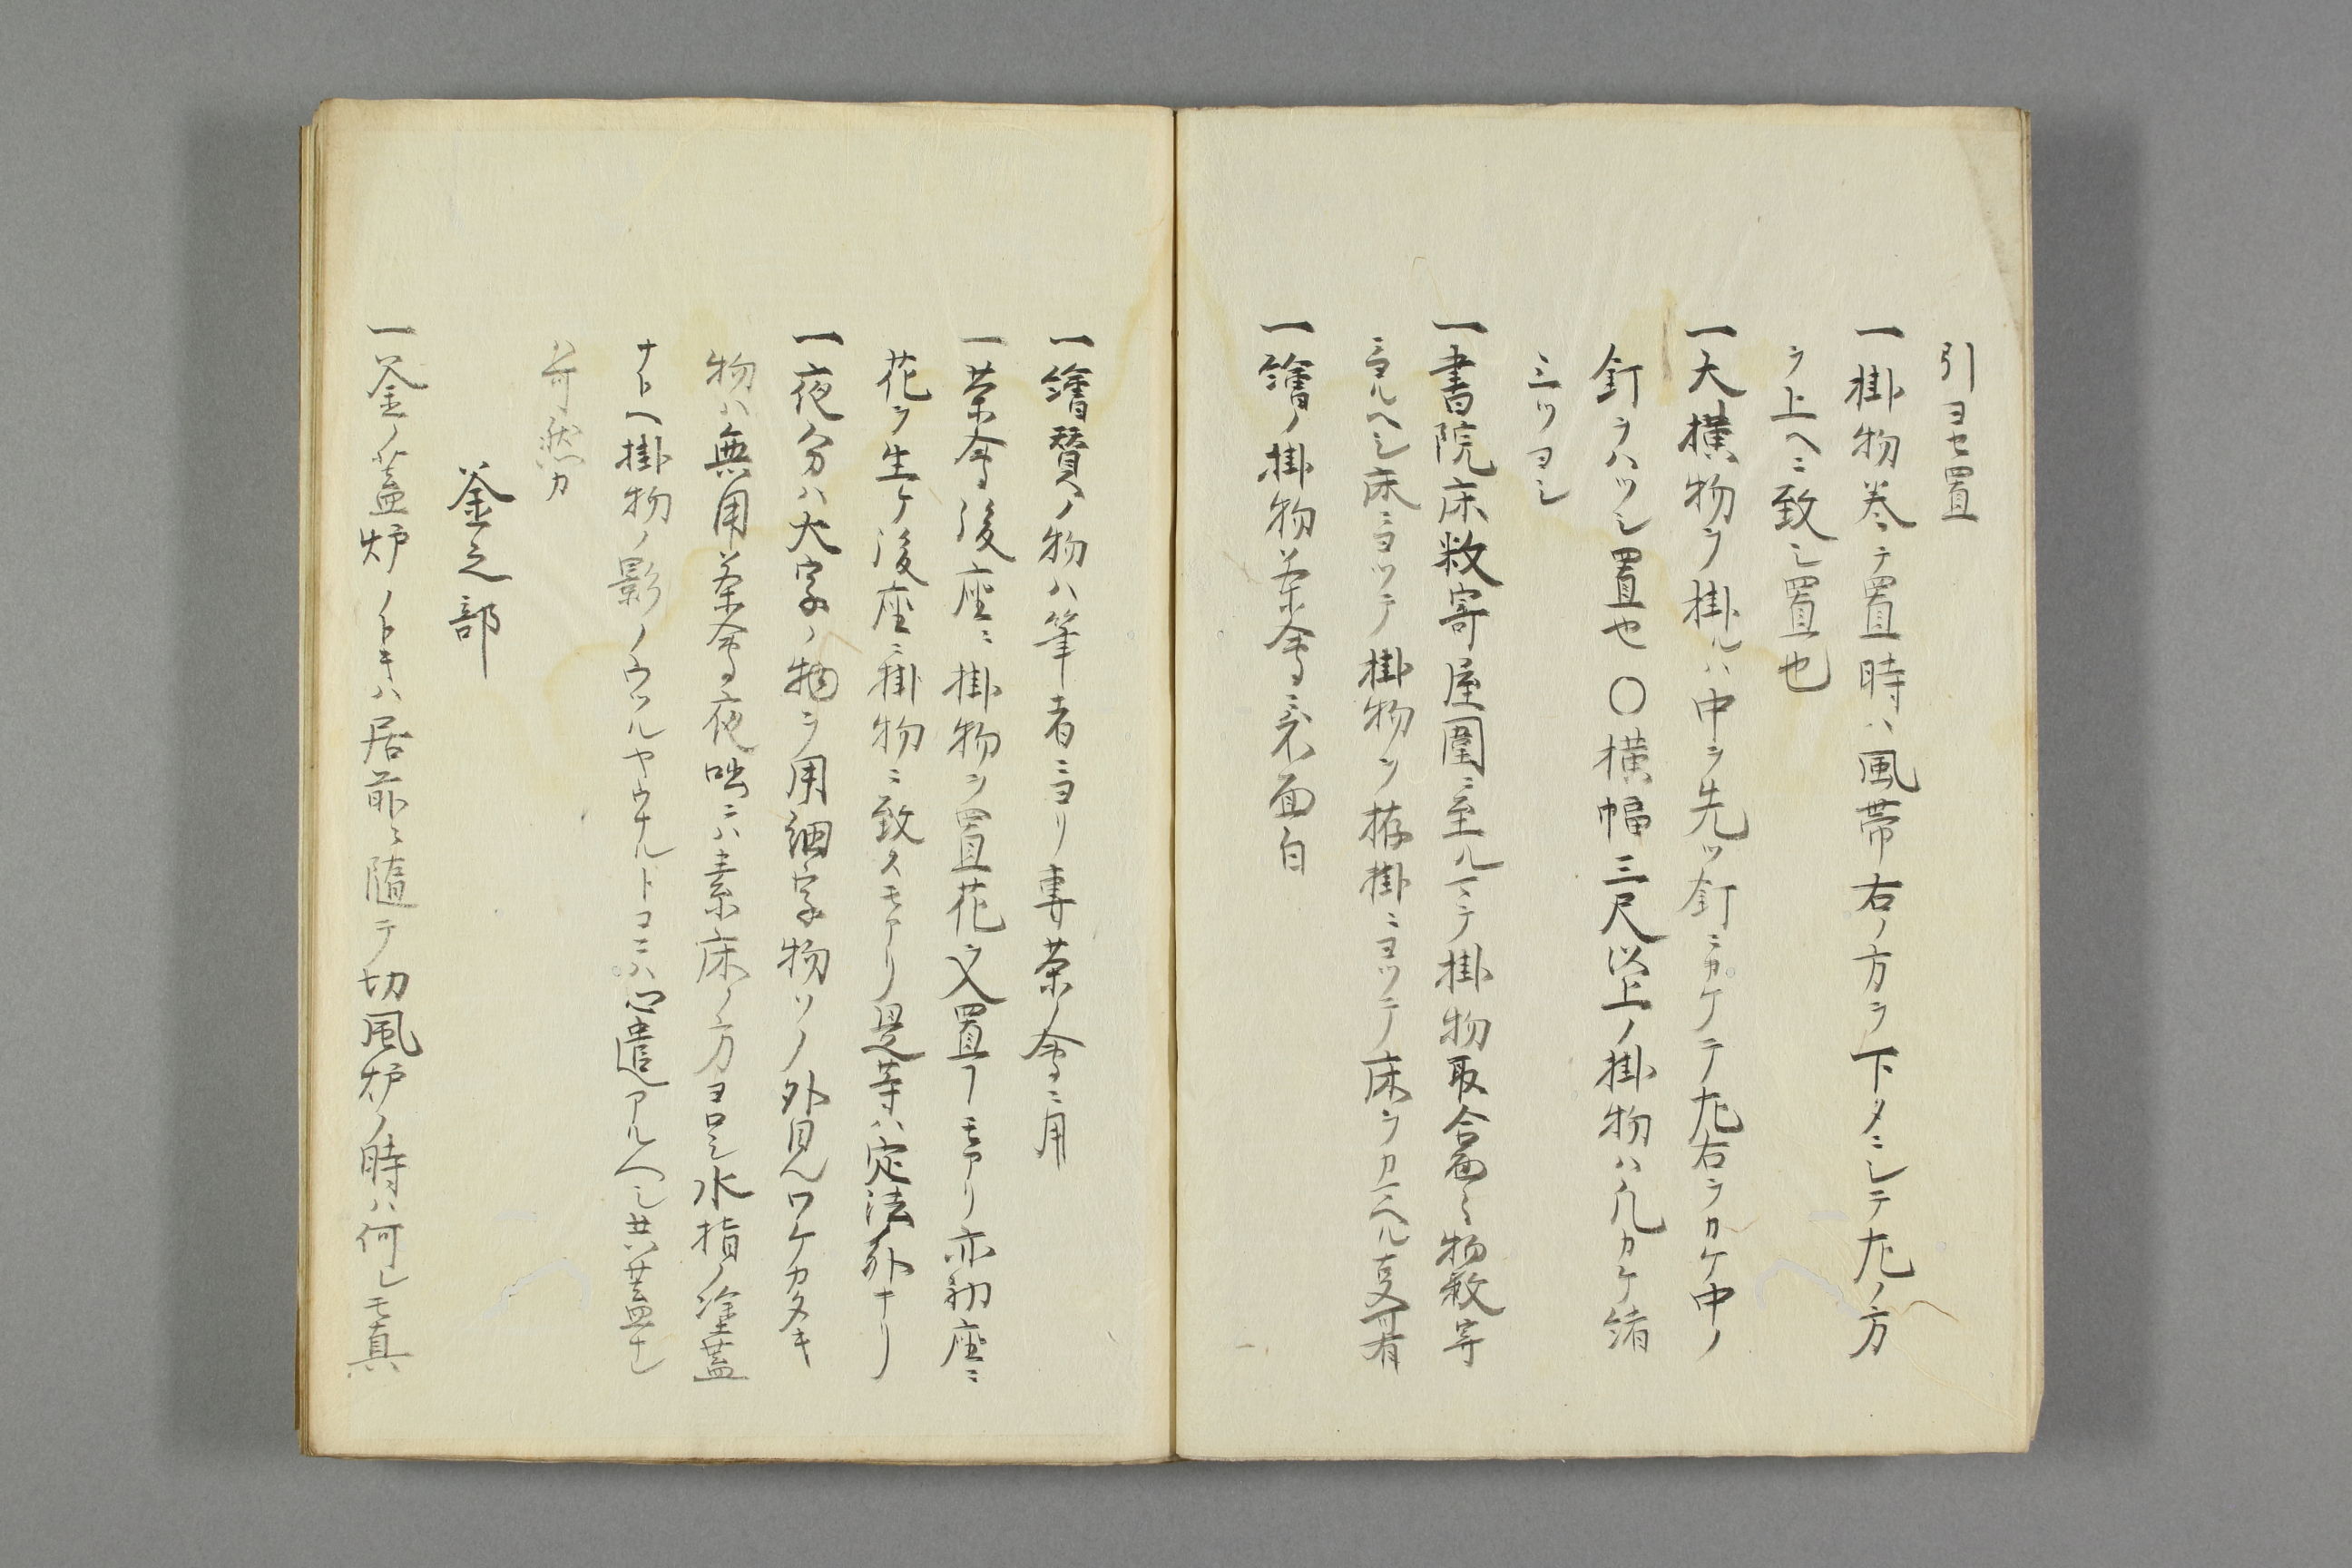 引ヨセ置
一掛物巻テ置時ハ風帯右ノ方ヲ下タニシテ左ノ方
ヲ上ヘニ致シ置也
一大横物ヲ掛ルハ中ヲ先ツ釘ニカケテ左右ヲカケ中ノ
釘ヲハツシ置也〇横幅三尺以上ノ掛物ハ凡カケ緒
三ツヨシ
一書院床数寄屋圍ニ至ルマテ掛物取合面々物数寄
ニヨルヘシ床ニヨツテ掛物ヲ掛ニヨツテ床ヲカヘル事可有
一繪ノ掛物茶會ニ不面白
一繪賛ノ物ハ筆者ニヨリ専茶ノ會ニ用
一茶會後座ニ掛物ヲ置花ヲ又置ヿモアリ亦初座ニ
花ヲ生ケ後座ニ掛物ニ致スモアリ是等ハ定法外ナリ
一夜分ハ大字ノ物ヲ用細字物ソノ外見ヘワケカタキ
物ハ無用茶會夜咄ニハ素床ノ方ヨロシ水指ノ塗蓋
ナトヘ掛物ノ影ノウツルヤウナルトコニハ心遣アルヘシ共蓋ナレ
ハ可然カ
釜之部
一釜ノ蓋炉ノトキハ居前ニ随テ切風炉ノ時ハ何レモ真